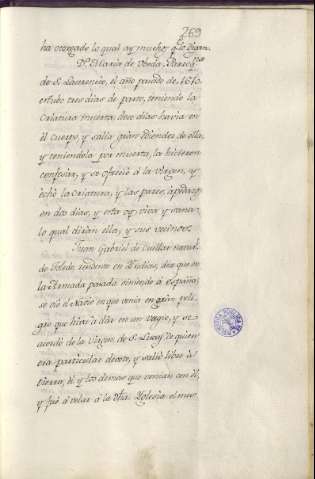 269
ha otorgado lo qual ay mucho q. lo digan
Dª. Maria de Varda Parroqna
de S. Laurencio, el año pasado de 1610.
estubo tres dias de parto, teniendo la
criatura muerta doce dias havia en
el cuerpo, y salia gran hedendez de ella,
y teniendola por muerta, la hicieron
confesar, y se ofreció a la Virgen, y
echó la criatura, y las pares, a pedazos
en dos dias, y esta oy viva y sana,
lo qual diran ella, y sus vecinos.
Juan Gabriel de Cuellar natural
de Toledo residente en Indias, dice que en
la Armada pasada viniendo á españa,
se vió el Navio en que venia en gran peli-
gro que hiva á dár en un vagio, y se
acordó de la Virgen de S. Lucas de quien
era particular devoto, y salió libre á
tierra, él y los demas que venian con él,
y fué á velar á la dha. Yglesia el mes